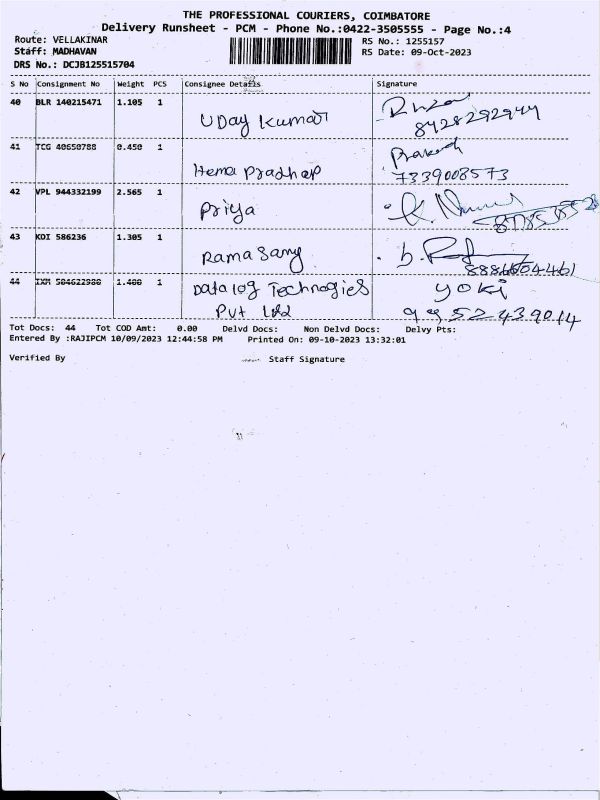 THE PROFESSIONAL COURIERS, COIMBATORE
Delivery Runsheet - PCM - Phone No.:0422-3505555 - Page No.:4
Route: VELLAKINAR
RS No.: 1255157
Staff: MADHAVAN
RS Date: 09-Oct-2023
DRS No.: DCJB125515704
S No Consignment No Weight PCS Consignee Details Signature
40 BLR 140215471 1.105 1
Uday Kumar
8428292944
41 TCG 40650788 0.450 1
Prakash
Hema Pradhap
7339008573
42 VPL 944332199 2.565 1
Priya
43 KDI 586236 1.305 1
Rama Samy
8886604461
44 IXM 504622980 1.400 1
Datalog Technogies
yoki
Pvt Ltd
9952439014
Tot Docs: 44 Tot COD Amt: 0.00 Delvd Docs: Non Delvd Docs: Delvy Pts:
Entered By :RAJIPCM 10/09/2023 12:44:58 PM Printed On: 09-10-2023 13:32:01
Verified By Staff Signature